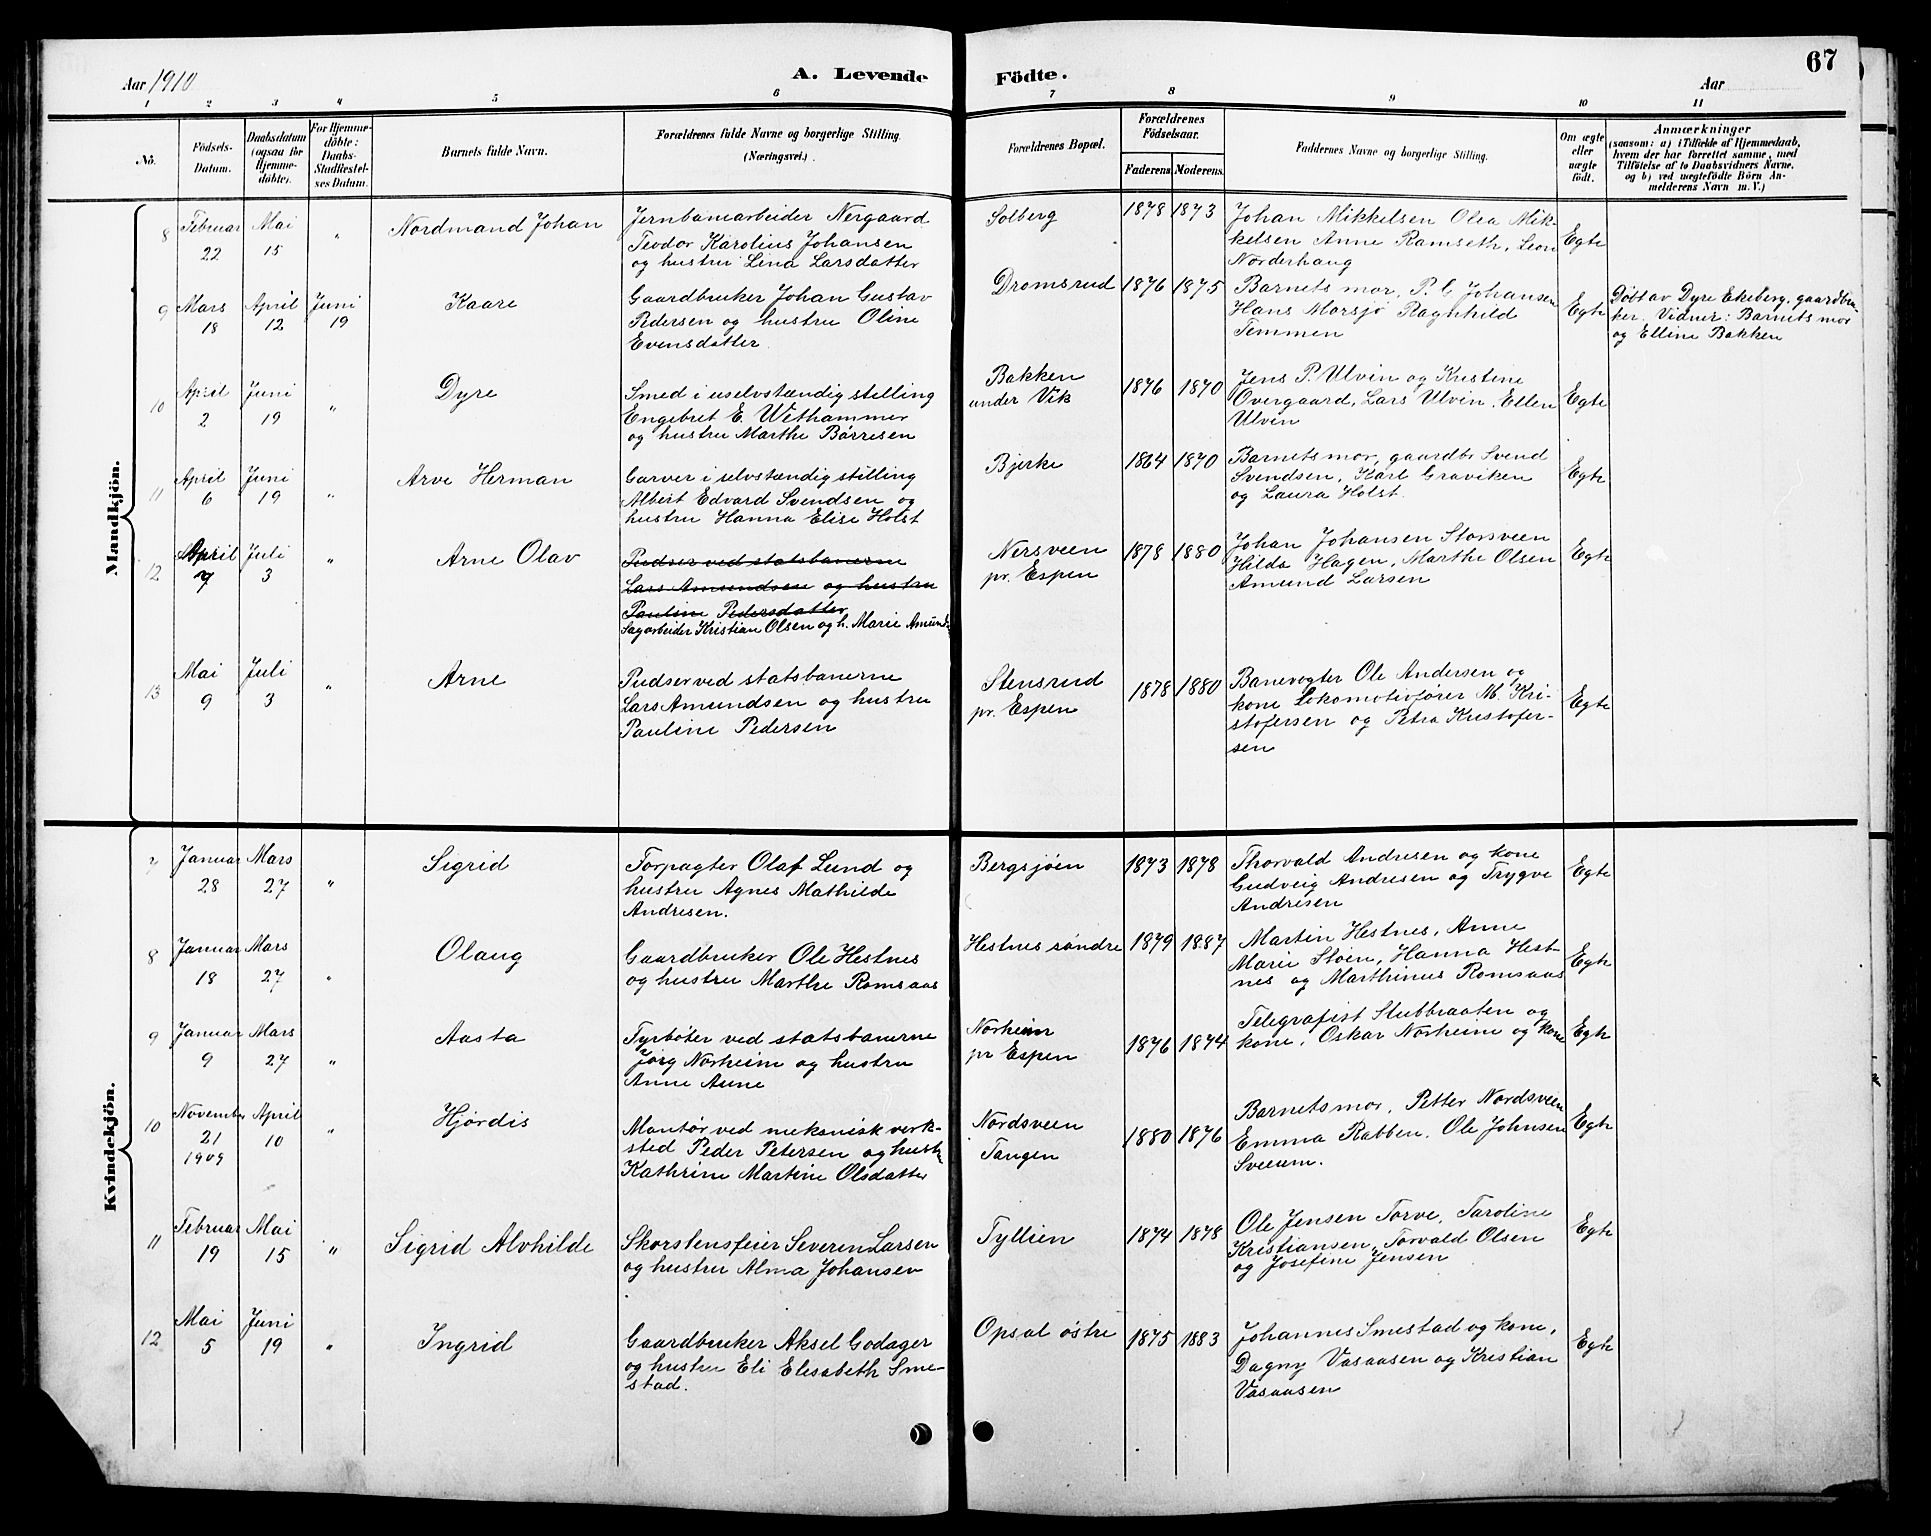 67
Aar 1910
A. Levende Födte.
Aar
1 2 3 4 5 6 7 8 9 10 11
No.
Födsels-
Datum.
Daabsdatum
(ogsaa for
Hjemme-
döbte).
For Hjemme-
döbte:
Daabs-
Stadfæstel-
ses Datum.
Barnets fulde Navn.
Forældrenes fulde Navne og borgerlige Stilling.
(Næringsvei.)
Forældrenes Bopæl.
Forældrenes
Födselsaar.
Faderens Moderens
Faddernes Navne og borgerlige Stilling.
Om ægte
eller
uægte
födt.
Anmærkninger
(saasom: a) i Tilfælde af Hjemmedaab,
hvem der har forrettet samme, med
Tilföielse af to Daabsvidners Navne,
og b) ved uægtefödte Börn An-
melderens Navn m. V.)
Mandkjön.
8
Februar
22
Mai
15
"
Nordmand Johan
Jernbanearbeider Nergaard
Teodor Karolius Johansen
og hustru Lina Larsdatter
Solberg
1878 1873
Johan Mikkelsen Olea Mik-
kelsen Anne Ramseth, Leon
Norderhaug
Egte
9
Mars
18
April
12
Juni
19
Kaare
Gaardbruker Johan Gustav
Pedersen og hustru Oline
Evensdatter
Dromsrud
1876 1875
Barnets mor, P. C Johansen
Hans Morsjø Ragnhild
Temmen
Egte
Døbt av Dyre Ekeberg, gaardbru-
ker. Vidner: Barnets mor
og Elline Bakken
10
April
2
Juni
19
"
Dyre
Smed i uselvstændig stilling
Engebret E. Withammer
og hustru Marthe Børresen
Bakken
under Vik
1876 1870
Jens P. Ulvin og Kristine
Overgaard, Lars Ulvin, Ellen
Ulvin
Egte
11
April
6
Juni
19
"
Arve Herman
Garver i selvstændig stilling
Albert Edvard Svendsen og
hustru Hanna Elise Holst
Bjerke
1864 1870
Barnets mor, gaardbr Svend
Svendsen, Karl Graviken
og Laura Holst.
Egte
12
April
7
Juli
3
"
Arne Olav
Pudser ved statsbanerne
Lars Amundsen og hustru
Pauline Pedersdatter
Sagarbeider Kristian Olsen og h. Marie Amunds
Nersveen
pr. Espen
1878 1880
Johan Johansen Storsveen
Hilda Hagen, Marthe Olsen
Amund Larsen
Egte
13
Mai
9
Juli
3
"
Arne
Pudser ved statsbanerne
Lars Amundsen og hustru
Pauline Pedersen
Stensrud
pr. Espen
1878 1880
Banevogter Ole Andersen og
kone Lokomotivfører M. Kri-
stofersen og Petra Kristofer-
sen
Egte
Kvindekjön.
7
Januar
28
Mars
27
"
Sigrid
Forpagter Olaf Lund og
hustru Agnes Mathilde
Andresen.
Bergsjøen
1873 1878
Thorvald Andresen og kone
Gudveig Andresen og Trygve
Andresen
Egte
8
Januar
18
Mars
27
"
Olaug
Gaardbruker Ole Hestnes
og hustru Marthe Romsaas
Hestnes søndre
1879 1887
Martin Hestnes, Anne
Marie Støen, Hanna Hest-
nes og Marthinus Romsaas
Egte
9
Januar
9
Mars
27
"
Aasta
Fyrbøter ved statsbanerne
Jørg Norheim og hustru
Anne Aune
Norheim
pr Espen
1876 1874
Telegrafist Stubbraaten og
kone, Oskar Norheim og kone
Egte
10
November
21
1909
April
10
"
Hjørdis
Montør ved mekanisk verk-
sted Peder Petersen og hustr
Kathrine Martine Olsdatter
Nordsveen
Tangen
1880 1876
Barnets mor, Petter Nordsveen
Emma Rabben, Ole Johnsen
Sveum.
Egte
11
Februar
19
Mai
15
"
Sigrid Alvhilde
Skorstensfeier Severin Larsen
og hustru Alma Johansen
Tyllien
1874 1878
Ole Jensen Torve, Taroline
Kristiansen, Torvald Olsen
og Josefine Jensen
Egte
12
Mai
5
Juni
19
"
Ingrid
Gaardbruker Aksel Godager
og hustru Eli Elisabeth Sme-
stad.
Opsal østre
1875 1883
Johannes Smestad og kone,
Dagny Vasaasen og Kristian
Vasaasen
Egte